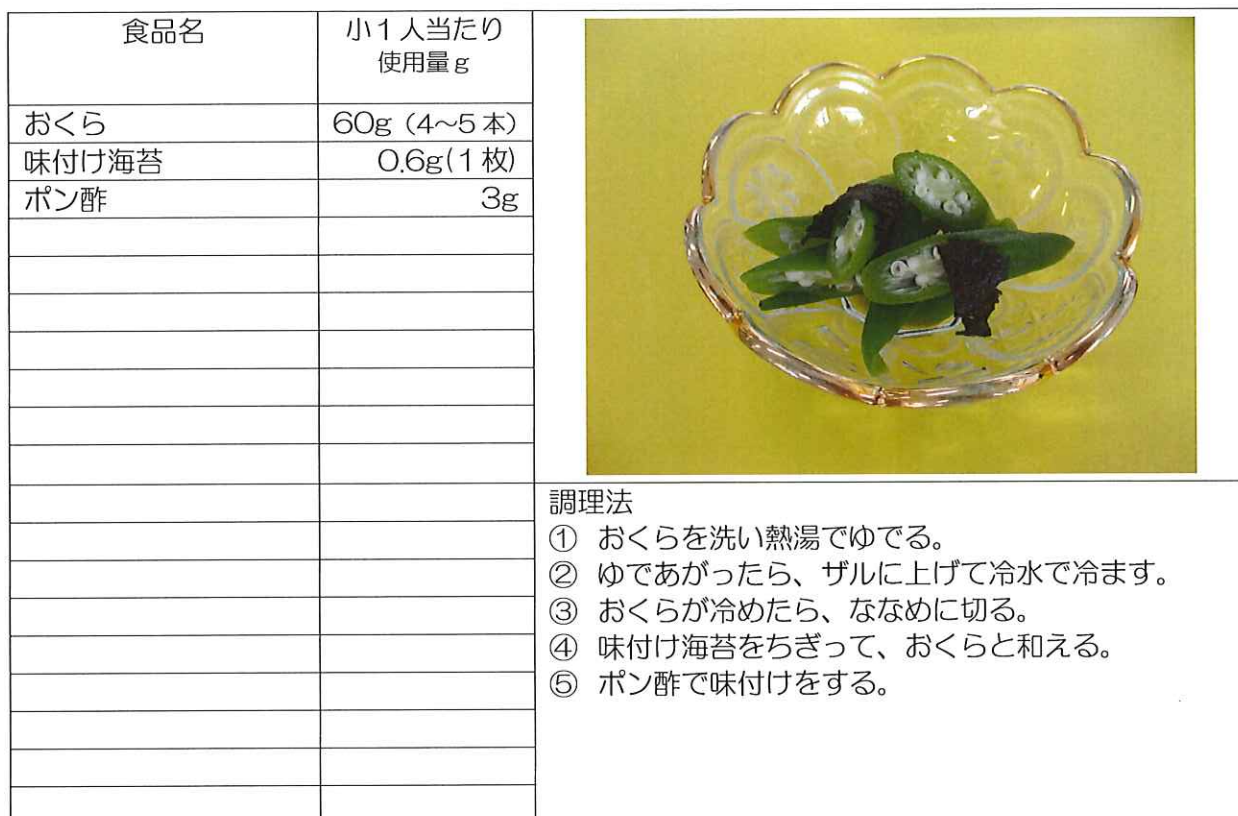 食品名
小1人当たり
使用量g
おくら 60g (4~5本)
味付け海苔 0.6g(1枚)
ポン酢 3g
調理法
① おくらを洗い熱湯でゆでる。
② ゆであがったら、ザルに上げて冷水で冷ます。
③ おくらが冷めたら、ななめに切る。
④ 味付け海苔をちぎって、おくらと和える。
⑤ ポン酢で味付けをする。